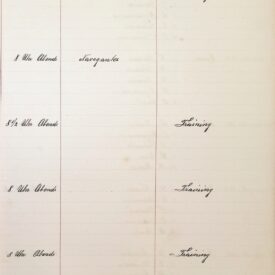 8 Uhr Abends Navegantes
8 1/2 Uhr Abends Training
8 Uhr Abends Training
8 Uhr Abends Training